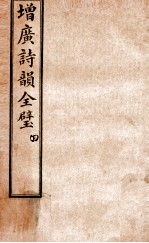 增廣詩韻全璧 四